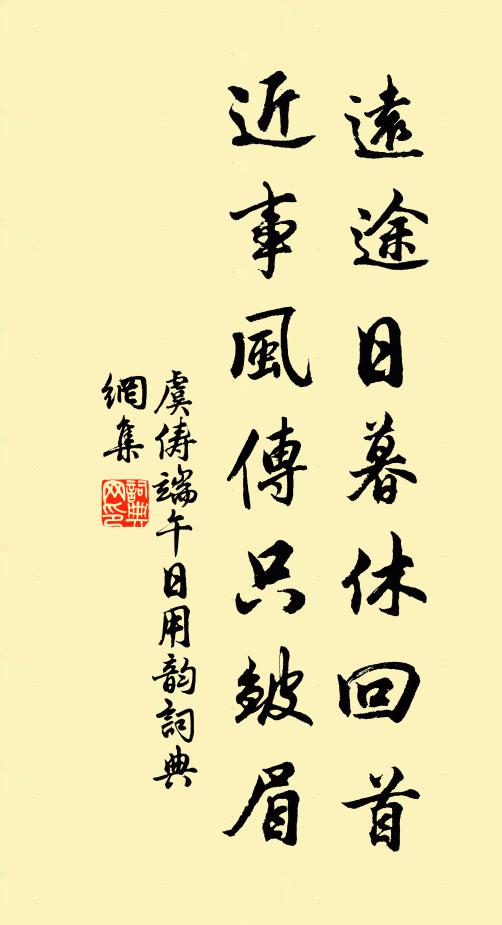 遠途日暮休回首
近事風傳只皺眉
虞儔端午日用韵詞典
網集
詞典
网印